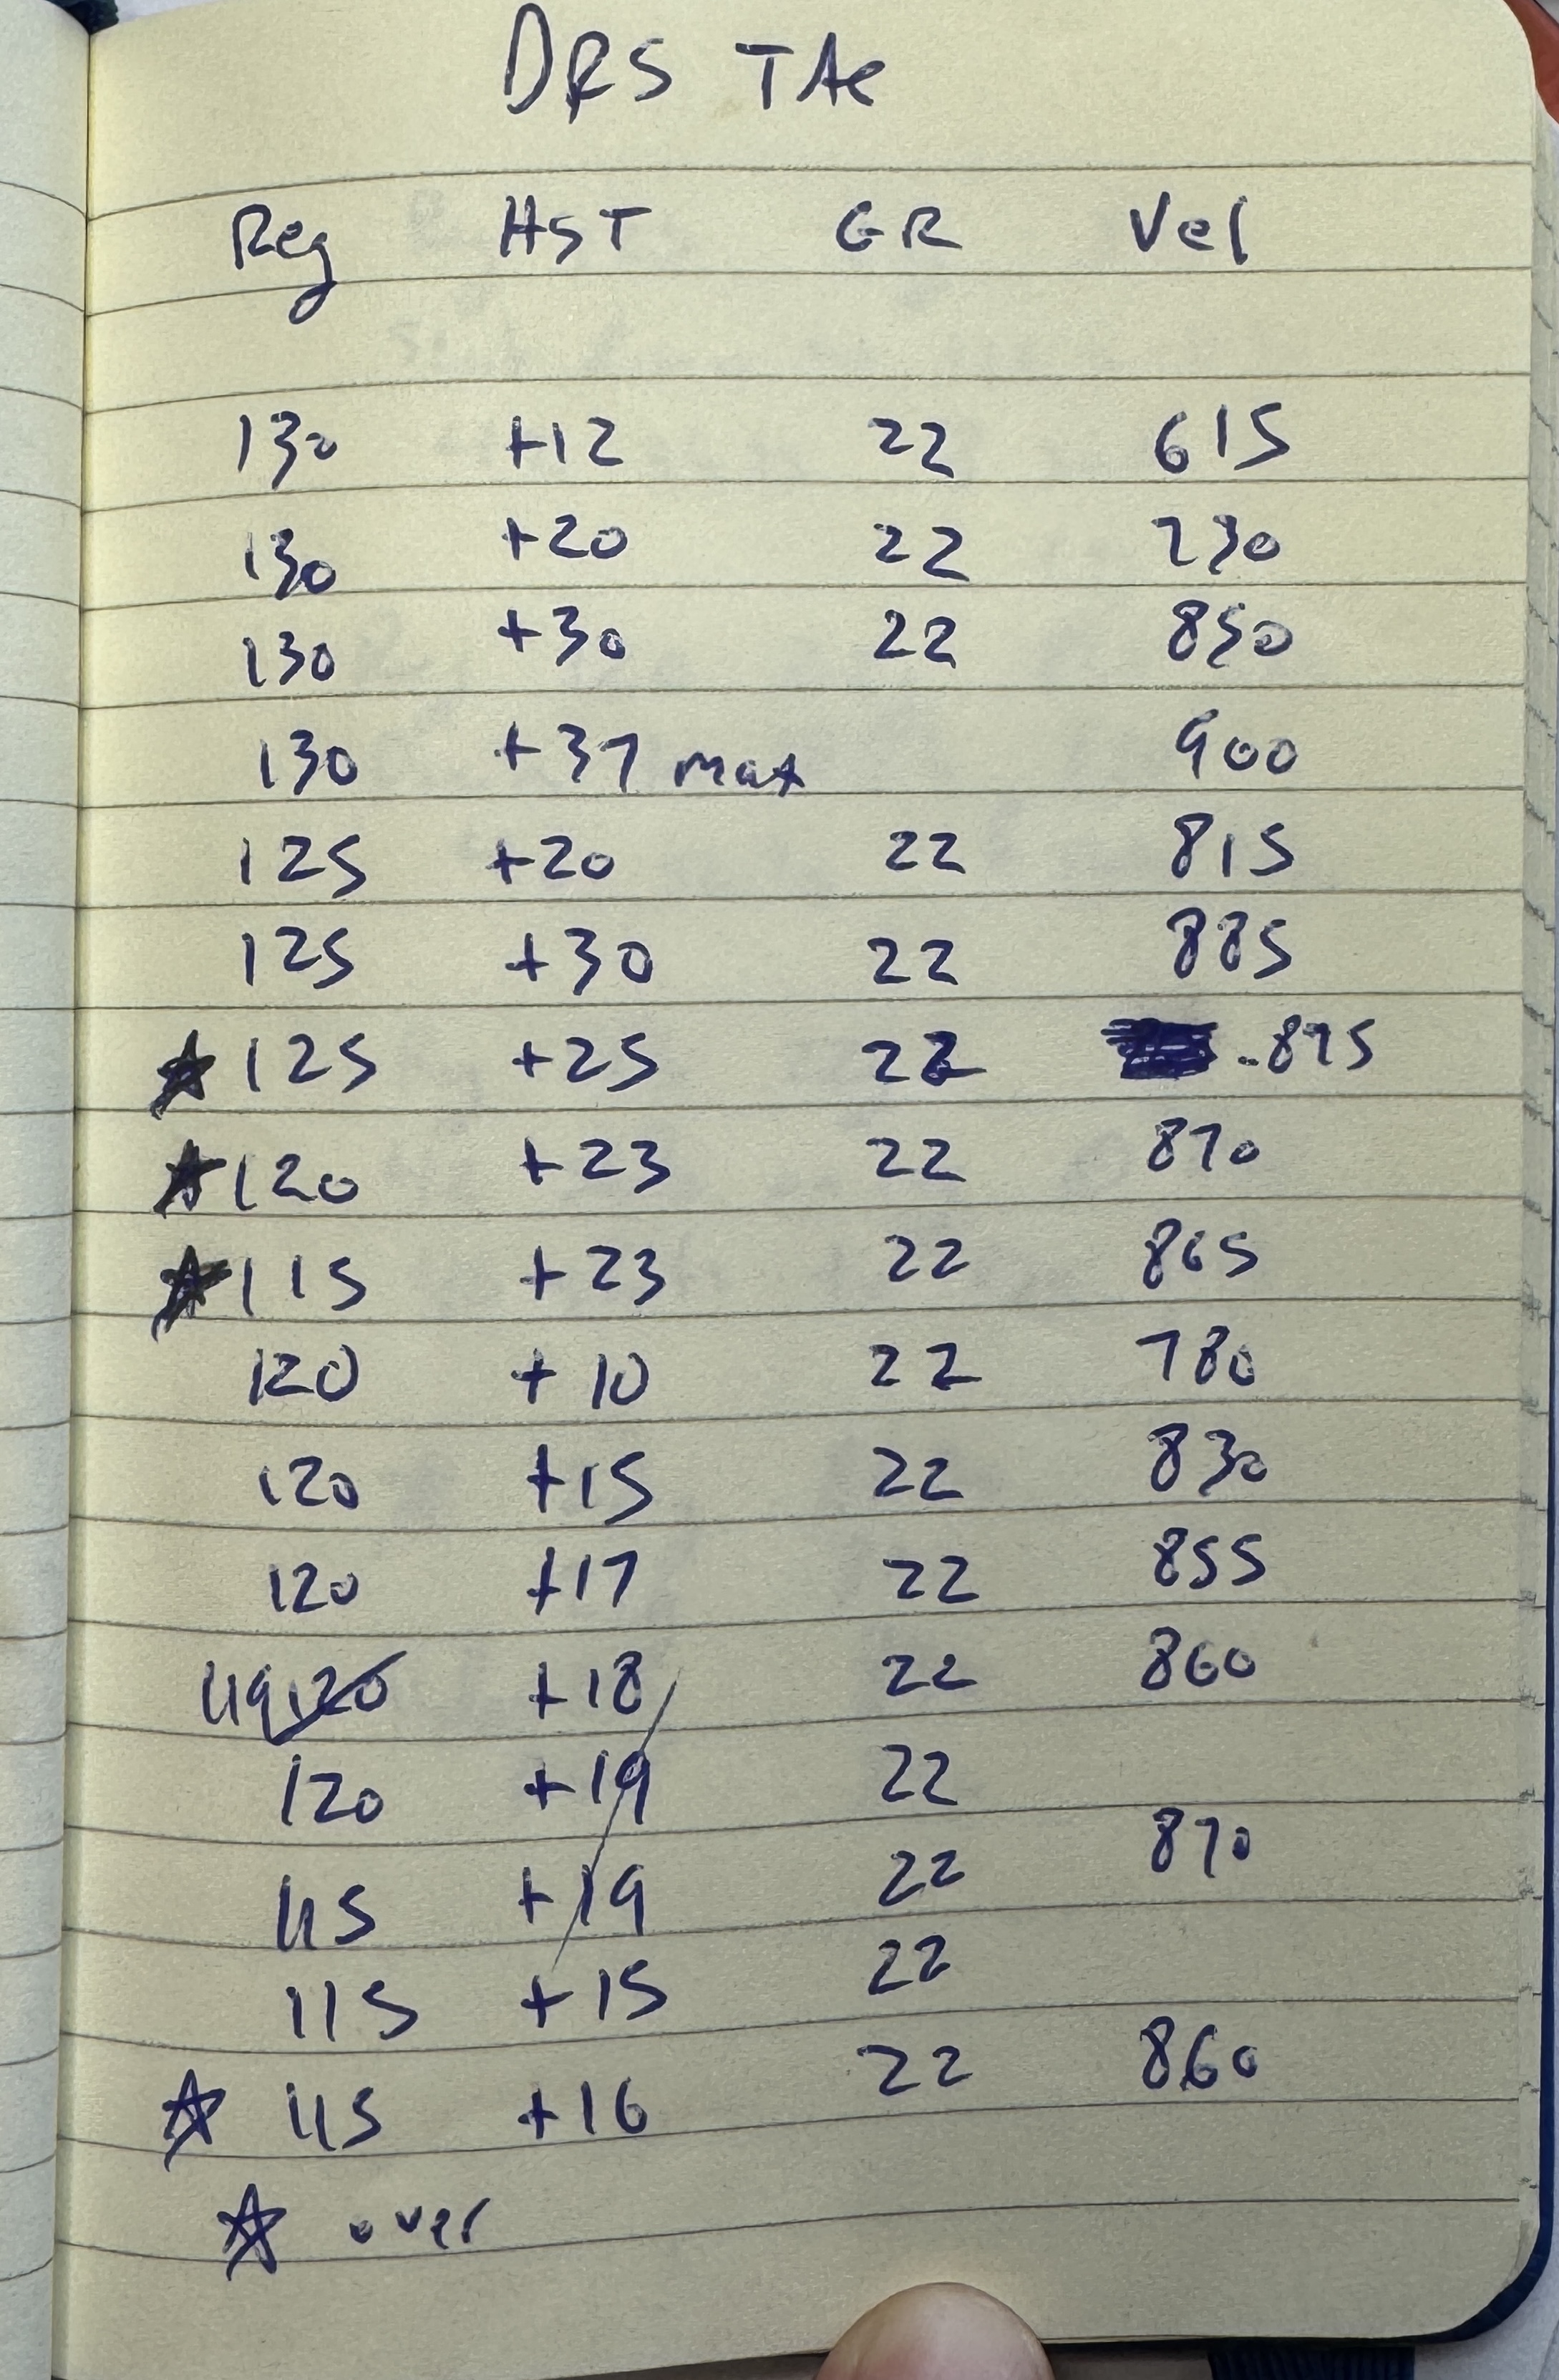 DRS TAC
Reg HST GR Vel
130 +12 22 615
130 +20 22 730
130 +30 22 850
130 +37 max 900
125 +20 22 815
125 +30 22 885
☆ 125 +25 22 895
☆ 120 +23 22 870
☆ 115 +23 22 865
120 +10 22 780
120 +15 22 830
120 +17 22 855
119 120 +18 22 860
120 +19 22
115 +19 22 870
115 +15 22
☆ 115 +16 22 860
☆ over